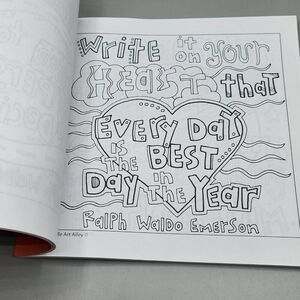 Write it on your
HEART that
EVERY DAY
IS the BEST
Day in the Year
Ralph Waldo Emerson
Art Alley ©